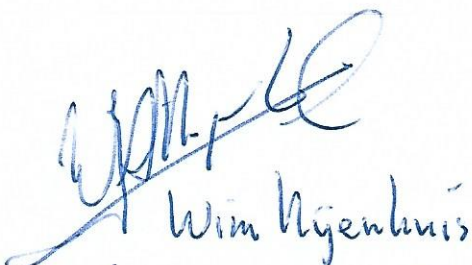 Wim Nijenhuis